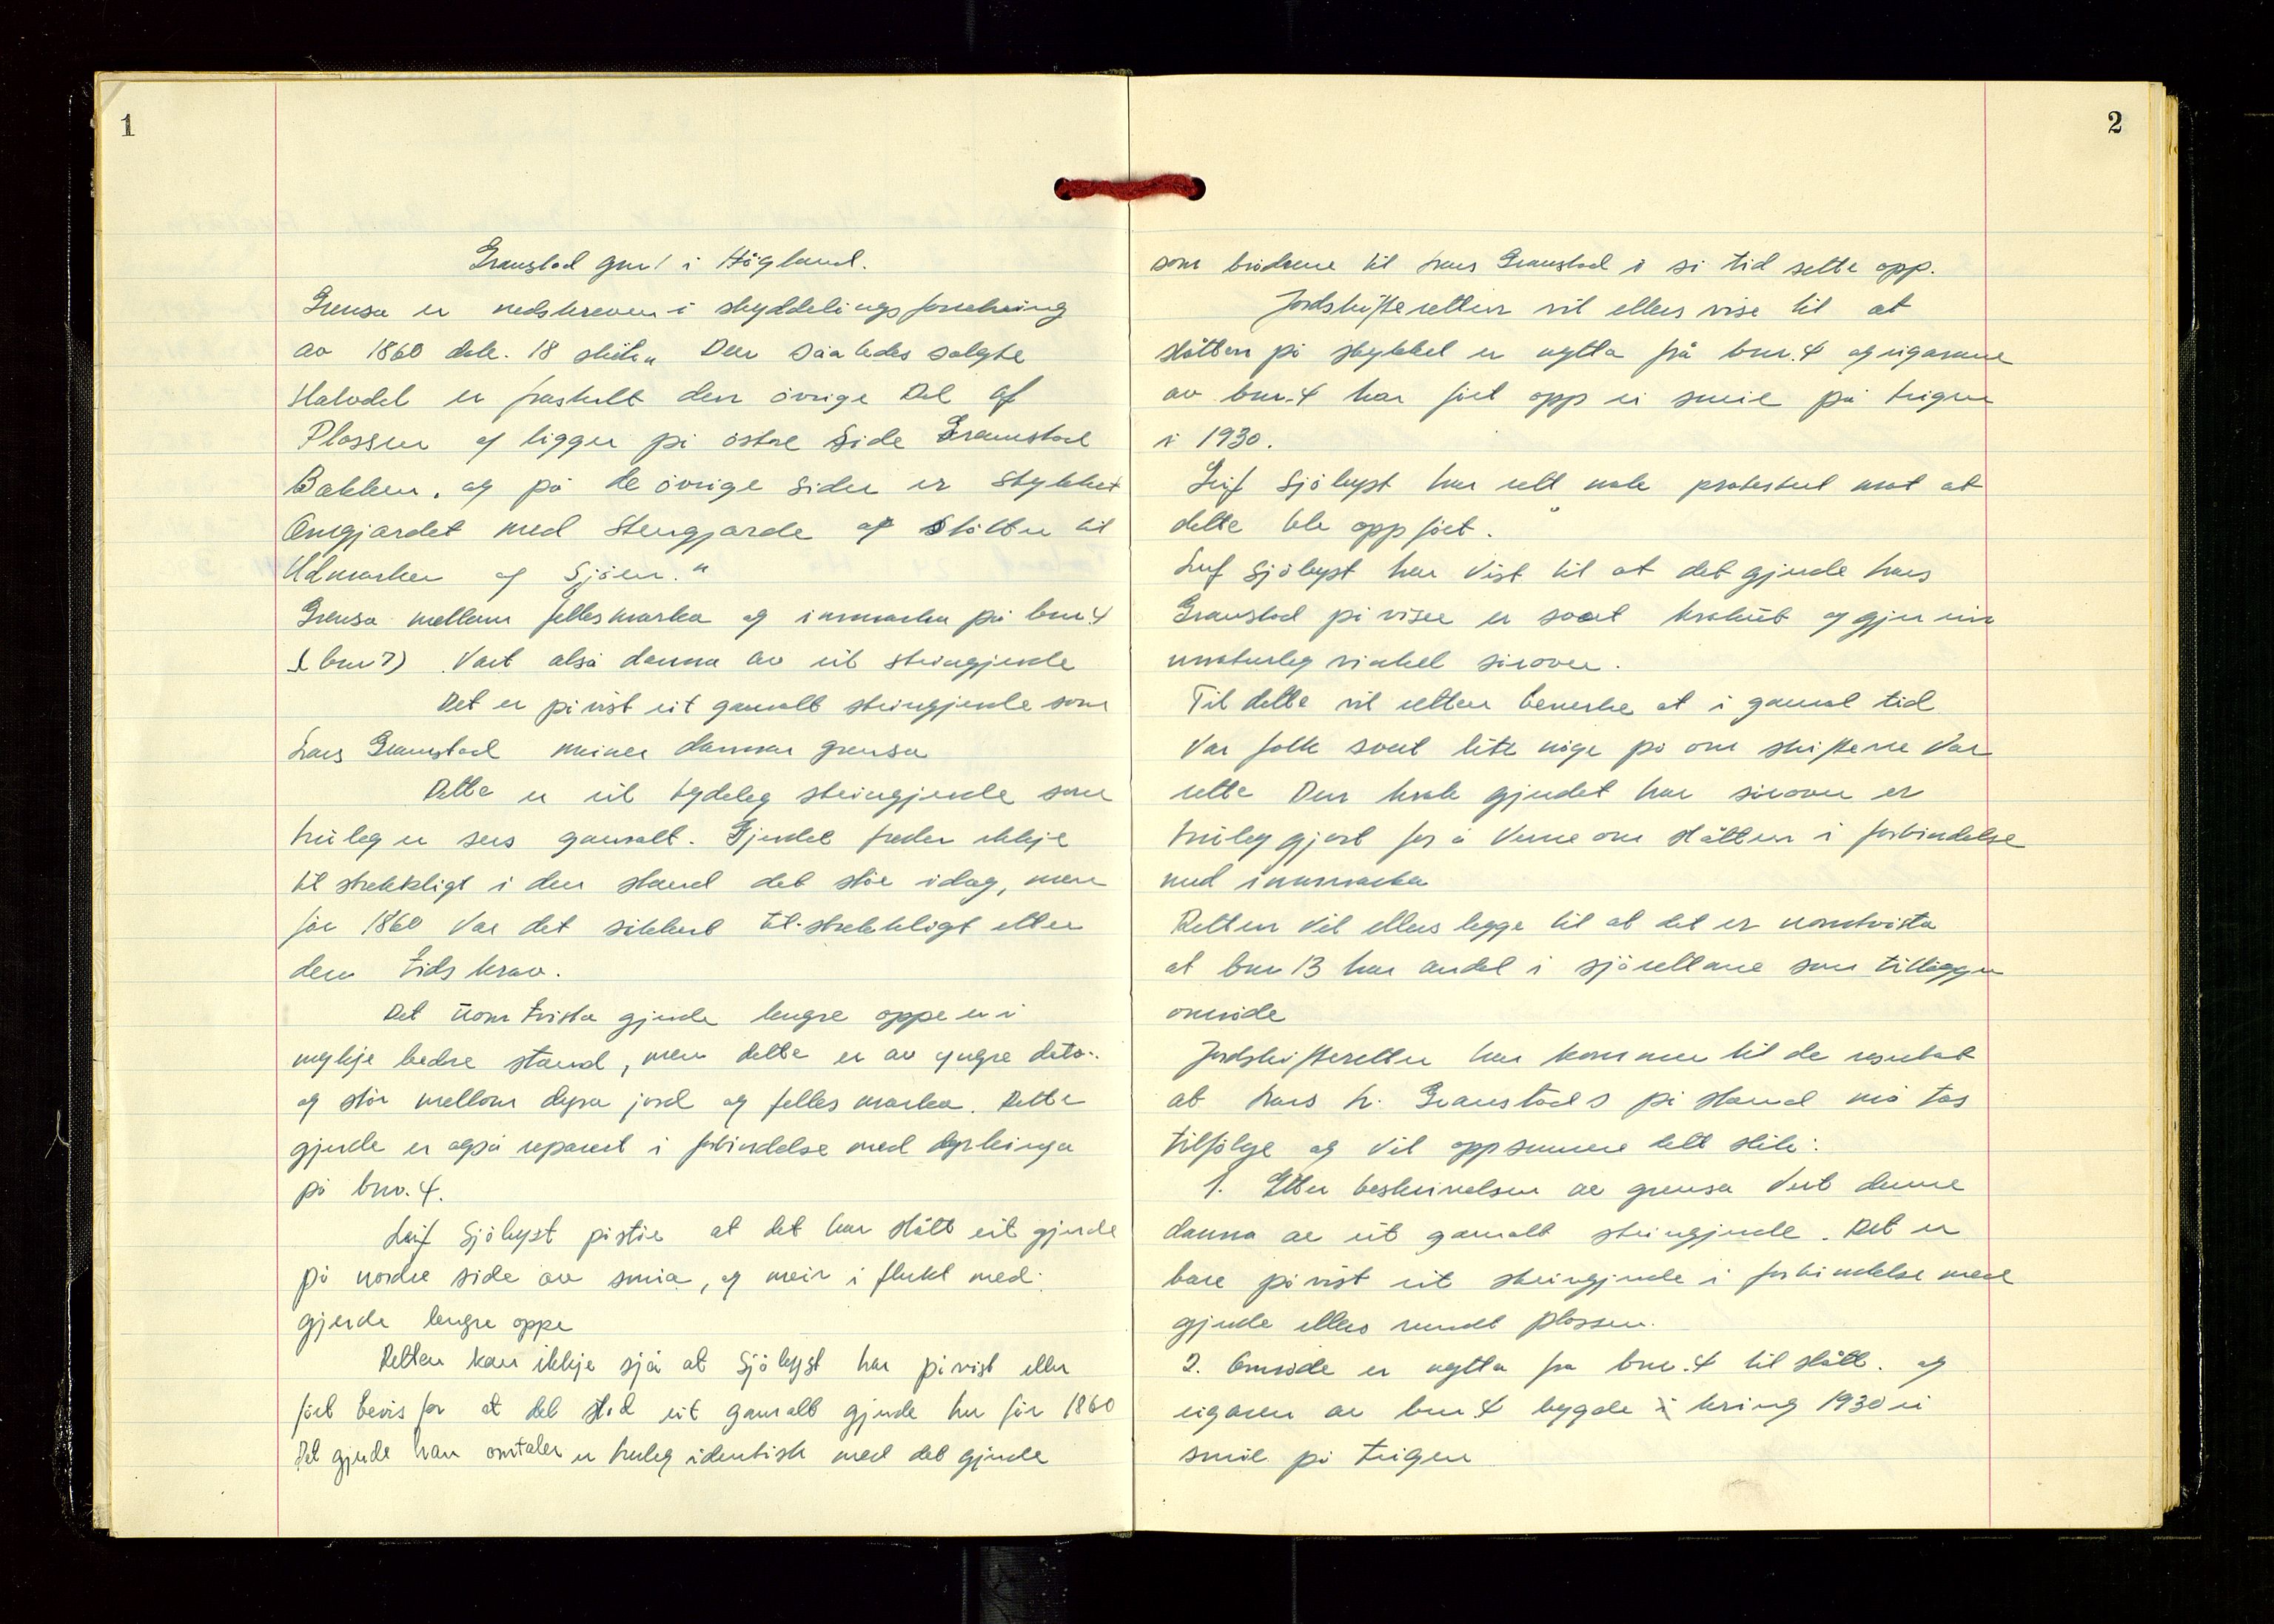 1
Granstad gnr 1 i Högland.
Grensa er nedskreven i skyddelingsforretning
av 1860 dok. 18 slik: „ Den saaledes solgte
Halvdel er fraskilt den övrige Del af
Plassen og ligger på östre Side Granstad
Bakken, og på de övrige Sider er Stykket
Omgjærdet med Stengjærde og Slåtten til
Udmarken og Sjöen."
Grensa mellom fellesmarka og innmarka på bnr 4
(bnr 7) Vart alså danna av eit steingjerde
Det er påvist eit gamalt steingjerde som
Lars Granstad meiner dannar grensa
Dette er eit tydeleg steingjerde som
truleg er sers gamalt. Gjerdet freder ikkje
tilstrekkligt i den stand det står idag, men
før 1860 Var det sikkert til-strekkligt etter
den tids krav.
Det uomtvista gjerde lengre oppe er i
mykje bedre stand, men dette er av yngre dato..
og står mellom dyrka jord og fellesmarka. Dette
gjerde er også reparert i forbindelse med dyrkinga
på bnr. 4.
Leif Sjölyst påstår at det har stått eit gjerde
på nordre side av smia, og meir i flukt med
gjerde lengre oppe
Retten kan ikkje sjå at Sjölyst har påvist eller
fört bevis for at det stod eit gamalt gjerde her før 1860
Det gjerde han omtaler er truleg identisk med det gjerde
2
som brødrene til Lars Granstad i si tid sette opp.
Jordskifteretten vil elles vise til at
slåtten på stykket er nytta frå bnr. 4 og eigarane
av bnr. 4 har ført opp ei smie på teigen
i 1930.
Leif Sjölyst har rett nok protestert mot at
dette ble oppført.
Leif Sjölyst har Vist til at det gjerde Lars
Granstad påviser er svært krokut og gjer ein
unaturleg vinkel sørover.
Til dette vil retten bemerke at i gamal tid
Var folk svært lite nöye på om skiftene Var
rette Den krok gjerdet har sørover er
truleg gjort for å Verne om slåtten i forbindelse
med innmarka
Retten Vil elles legge til at det er uomtvista
at bnr 13 har andel i sjörettane som tilligger
område
Jordskifteretten har kommen til de resultat
at Lars H. Granstads påstand må tas
tilfölge og Vil oppsummere dette slik:
1. Etter beskrivelsen av grensa Vert denne
danna av eit gamalt steingjerde. Det er
bare påvist eit steingjerde i forbindelse med
gjerde elles rundt plassen.
2. Område er nytta fra bnr. 4 til slått. og
eigaren av bnr 4 bygde i kring 1930 ei
smie på teigen